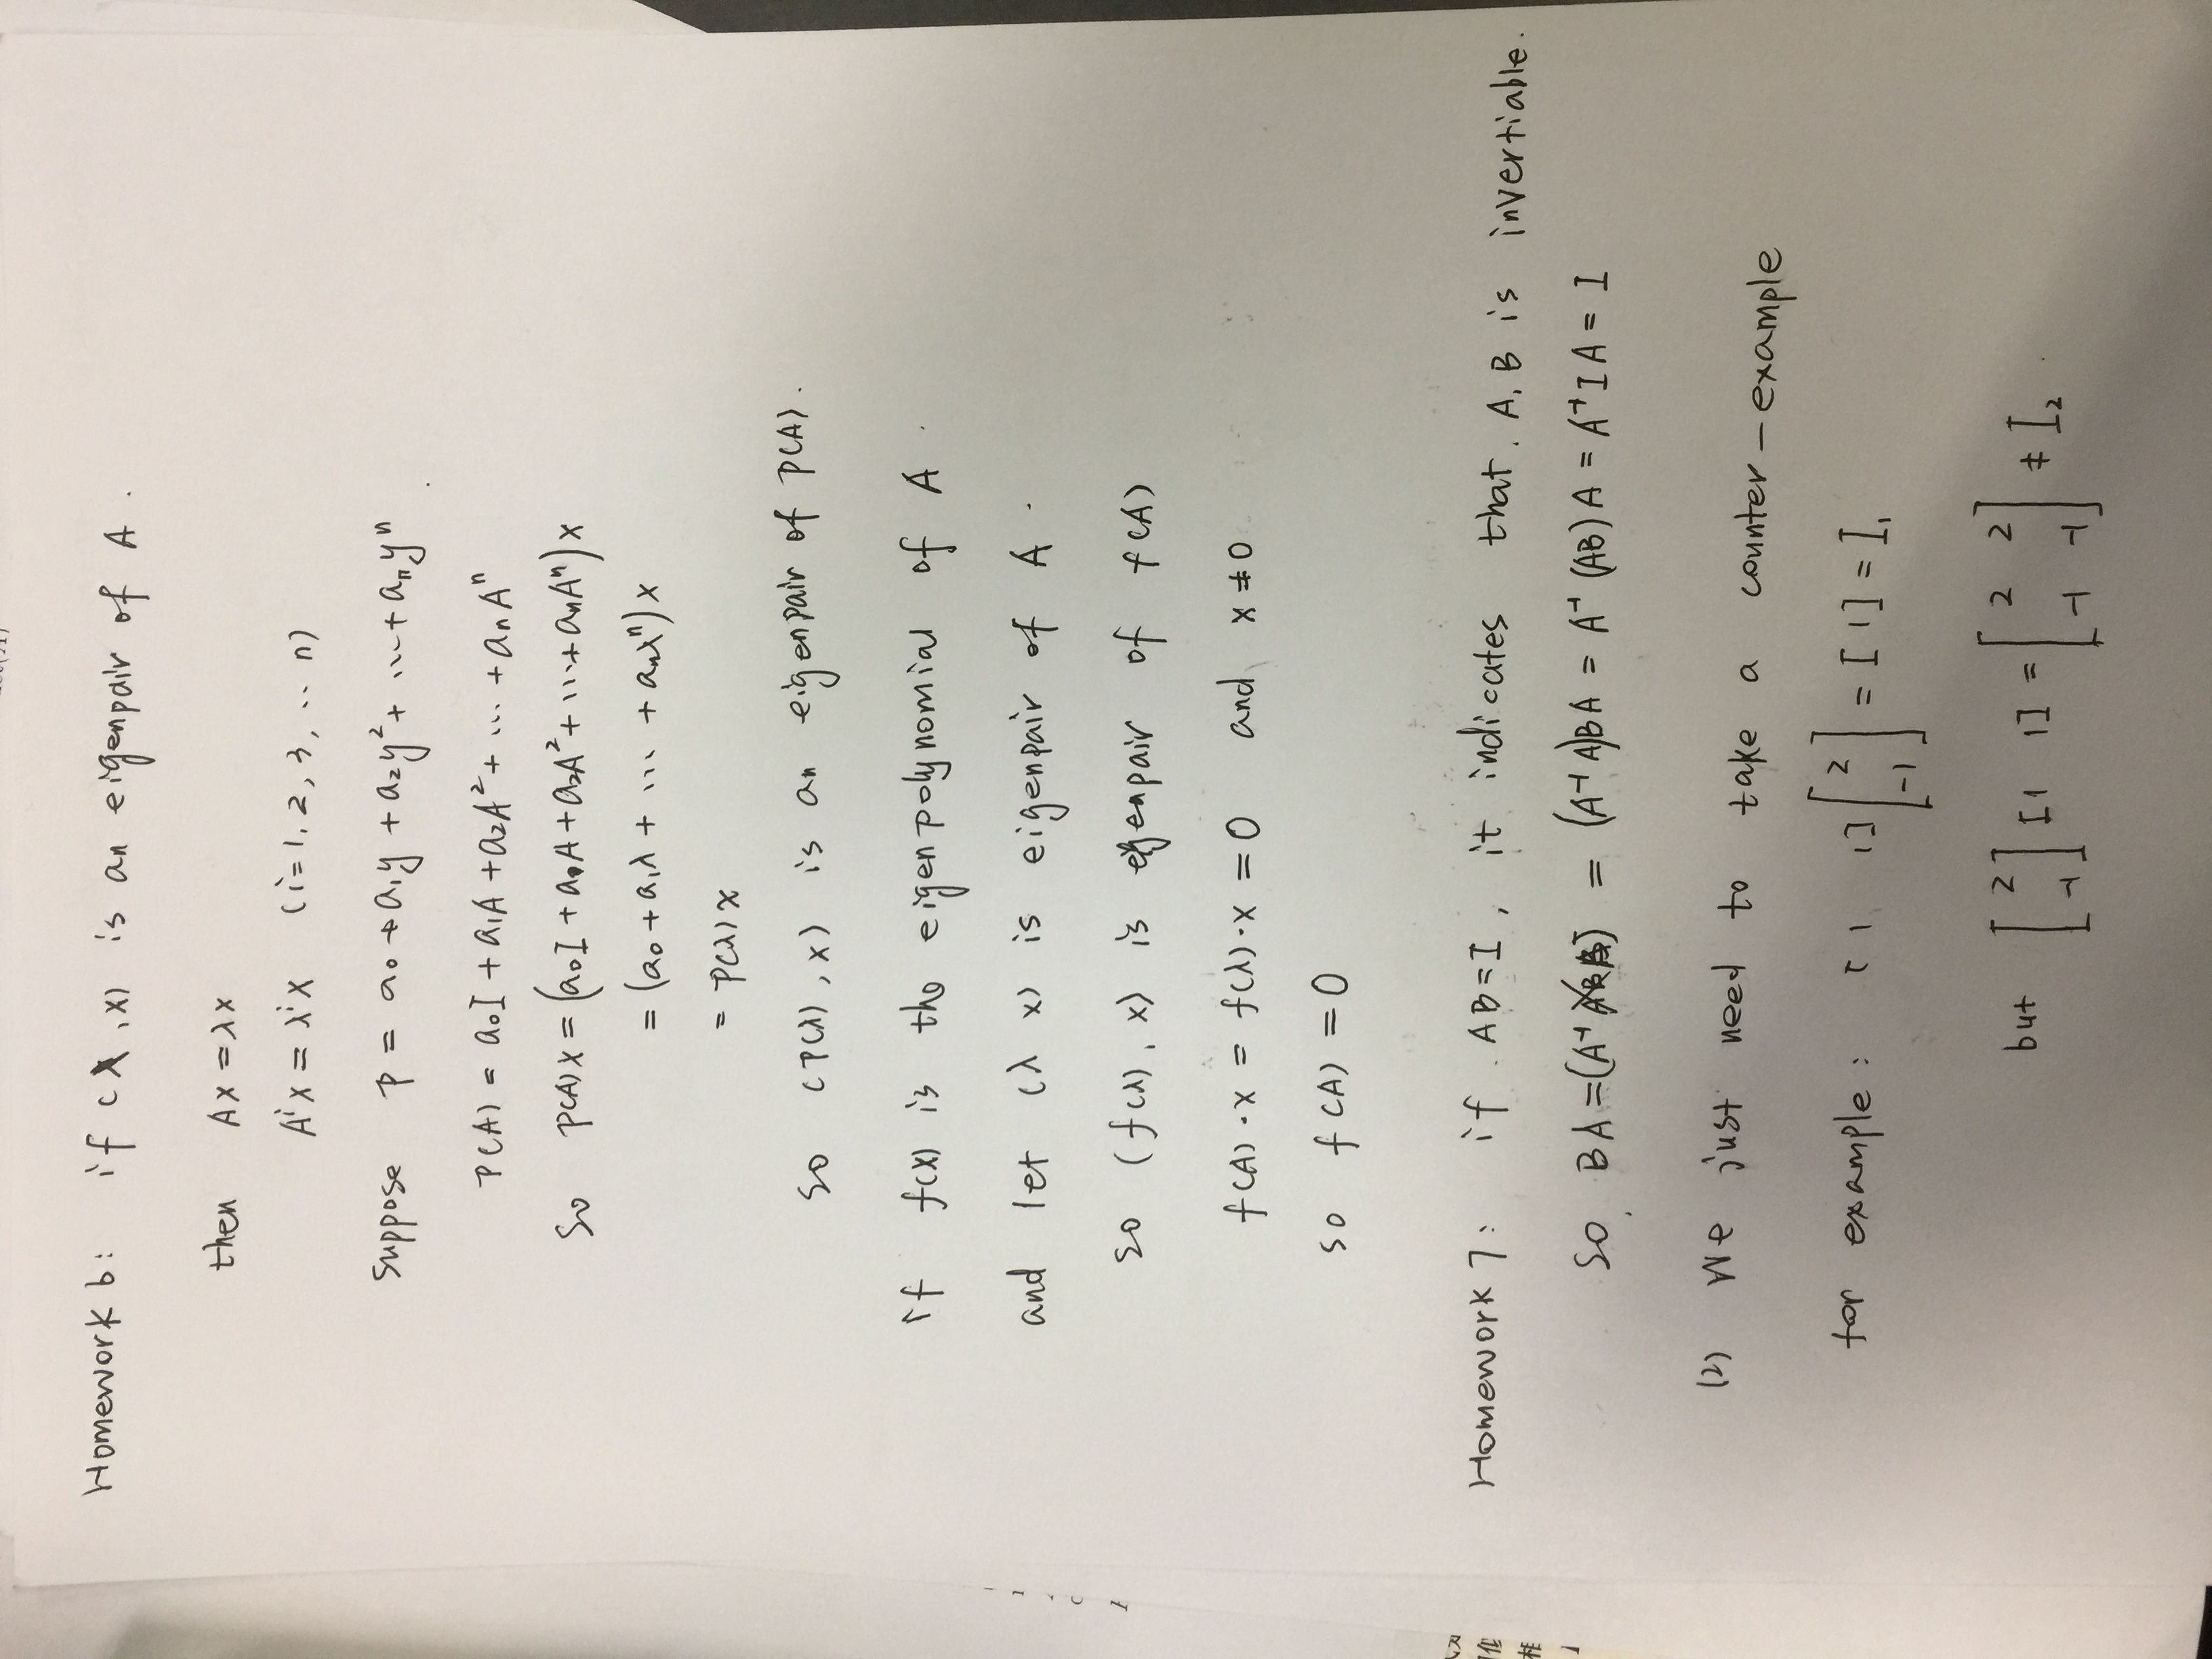 Homework 6: if (λ, x) is an eigenpair of A.
then Ax = λx
Aⁱx = λⁱx (i=1, 2, 3, .. n)
suppose p = a₀ + a₁y + a₂y² + ... + aₙyⁿ
P(A) = a₀I + a₁A + a₂A² + ... + aₙAⁿ
So p(A)x = (a₀I + a₁A + a₂A² + ... + aₙAⁿ)x
= (a₀ + a₁λ + ... + aₙλⁿ)x
= P(λ)x
so (P(λ), x) is an eigenpair of P(A).
if f(x) is the eigenpolynomial of A.
and let (λ x) is eigenpair of A.
so (f(λ), x) is eigenpair of f(A)
f(A)·x = f(λ)·x = 0 and x ≠ 0
so f(A) = 0
Homework 7: if AB=I, it indicates that A, B is invertiable.
So BA = (A⁻¹ ) = (A⁻¹A)BA = A⁻¹(AB)A = A⁻¹IA = I
(2) We just need to take a counter-example
for example: [1 1] [2 -1] = [1] = I₁
but [2 -1] [1 1] = [2 2 -1 -1] ≠ I₂